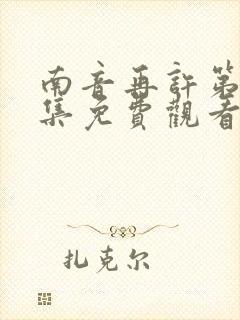 南音再許第
集免費觀看
扎克尔